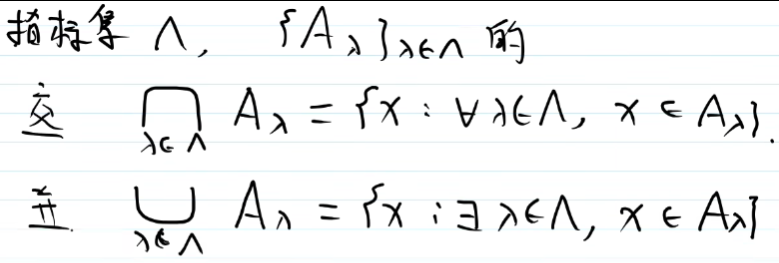 指标集 Λ, {A_λ}_{λ∈Λ} 的
交 ⋂_{λ∈Λ} A_λ = {x : ∀ λ∈Λ, x ∈ A_λ}.
并 ⋃_{λ∈Λ} A_λ = {x : ∃ λ∈Λ, x ∈ A_λ}